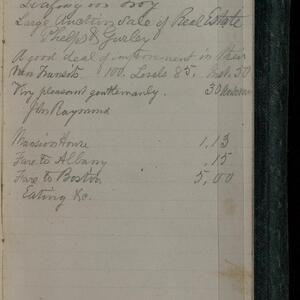 Large Auction Sale of Real Estate
Phelps & Gurley
A good deal of improvement in their
Transit. 100. Levels 85.
Very pleasant gentlemanly.
Jno Raymond
Mansion House 1,13
Fare to Albany ,15
Fare to Boston 5,00
Eating &c.